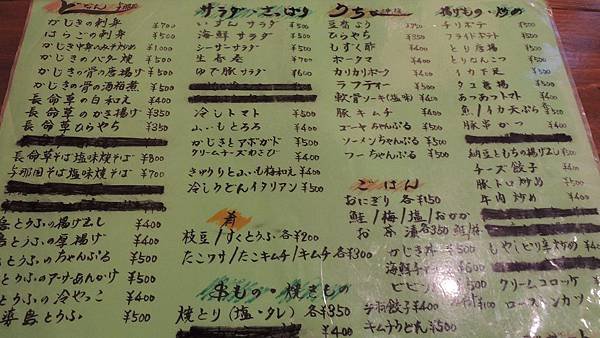 かじきの刺身 ¥700
はらごの刺身 ¥500
かじき中身のみそ炒め ¥1,000
かじきのバター焼 ¥500
かじきの骨の唐揚げ ¥500
かじきの骨の酒粕煮 ¥500
長命草の白和え ¥400
長命草のかき揚げ ¥350
長命草ひらやち ¥350
長命草そば塩味焼そば ¥800
与那国そば塩味焼そば ¥700
島とうふの揚げ出し ¥400
とうふの厚揚げ ¥400
とうふのちゃんぷる ¥500
とうふのアーサーあんかけ ¥500
とうふの冷やっこ ¥400
島とうふ ¥500
サラダ・さっぱり
いすんサラダ ¥500
海鮮サラダ ¥500
シーサーサラダ ¥500
生春巻 ¥700
ゆで豚サラダ ¥500
冷しトマト ¥500
ふーもとろろ ¥400
かじきとアボガド ¥500
クリームチーズわさび ¥400
きゅうりとふーも梅和え ¥400
冷しうどんイタリアン ¥500
肴
枝豆/すくとうふ 各¥200
たこワサ/たこキムチ/キムチ 各¥300
串もの・焼きもの
焼とり(塩・タレ) 各¥350
うちなー
豆腐よう ¥350
ひらやち ¥350
もずく酢 ¥400
ポークタマ ¥400
カリカリポーク ¥400
ラフティー ¥500
軟骨ソーキ(塩味) ¥400
豚キムチ ¥400
ゴーヤちゃんぷる ¥500
ソーメンちゃんぷる ¥500
フーちゃんぷる ¥500
ごはん
おにぎり 各¥150
鮭/梅/塩/おかか
お茶漬 各350 鮭/梅
かじき丼 ¥500
海鮮 ¥600
ビビン
手羽餃子 ¥400
キムチうどん ¥500
揚げもの・炒め
チリポテ
フライドポテト
とり唐揚
とりなんこつ
イカ下足
タコ唐揚
あつあつトマト
魚/イカ天ぷら
豚串かつ
納豆ともちの揚げ出し ¥500
チーズ餃子 ¥400
豚トロ炒め ¥400
牛肉炒め ¥400
もやしピリ辛炒め ¥400
クリームコロッケ
ローストンカツ